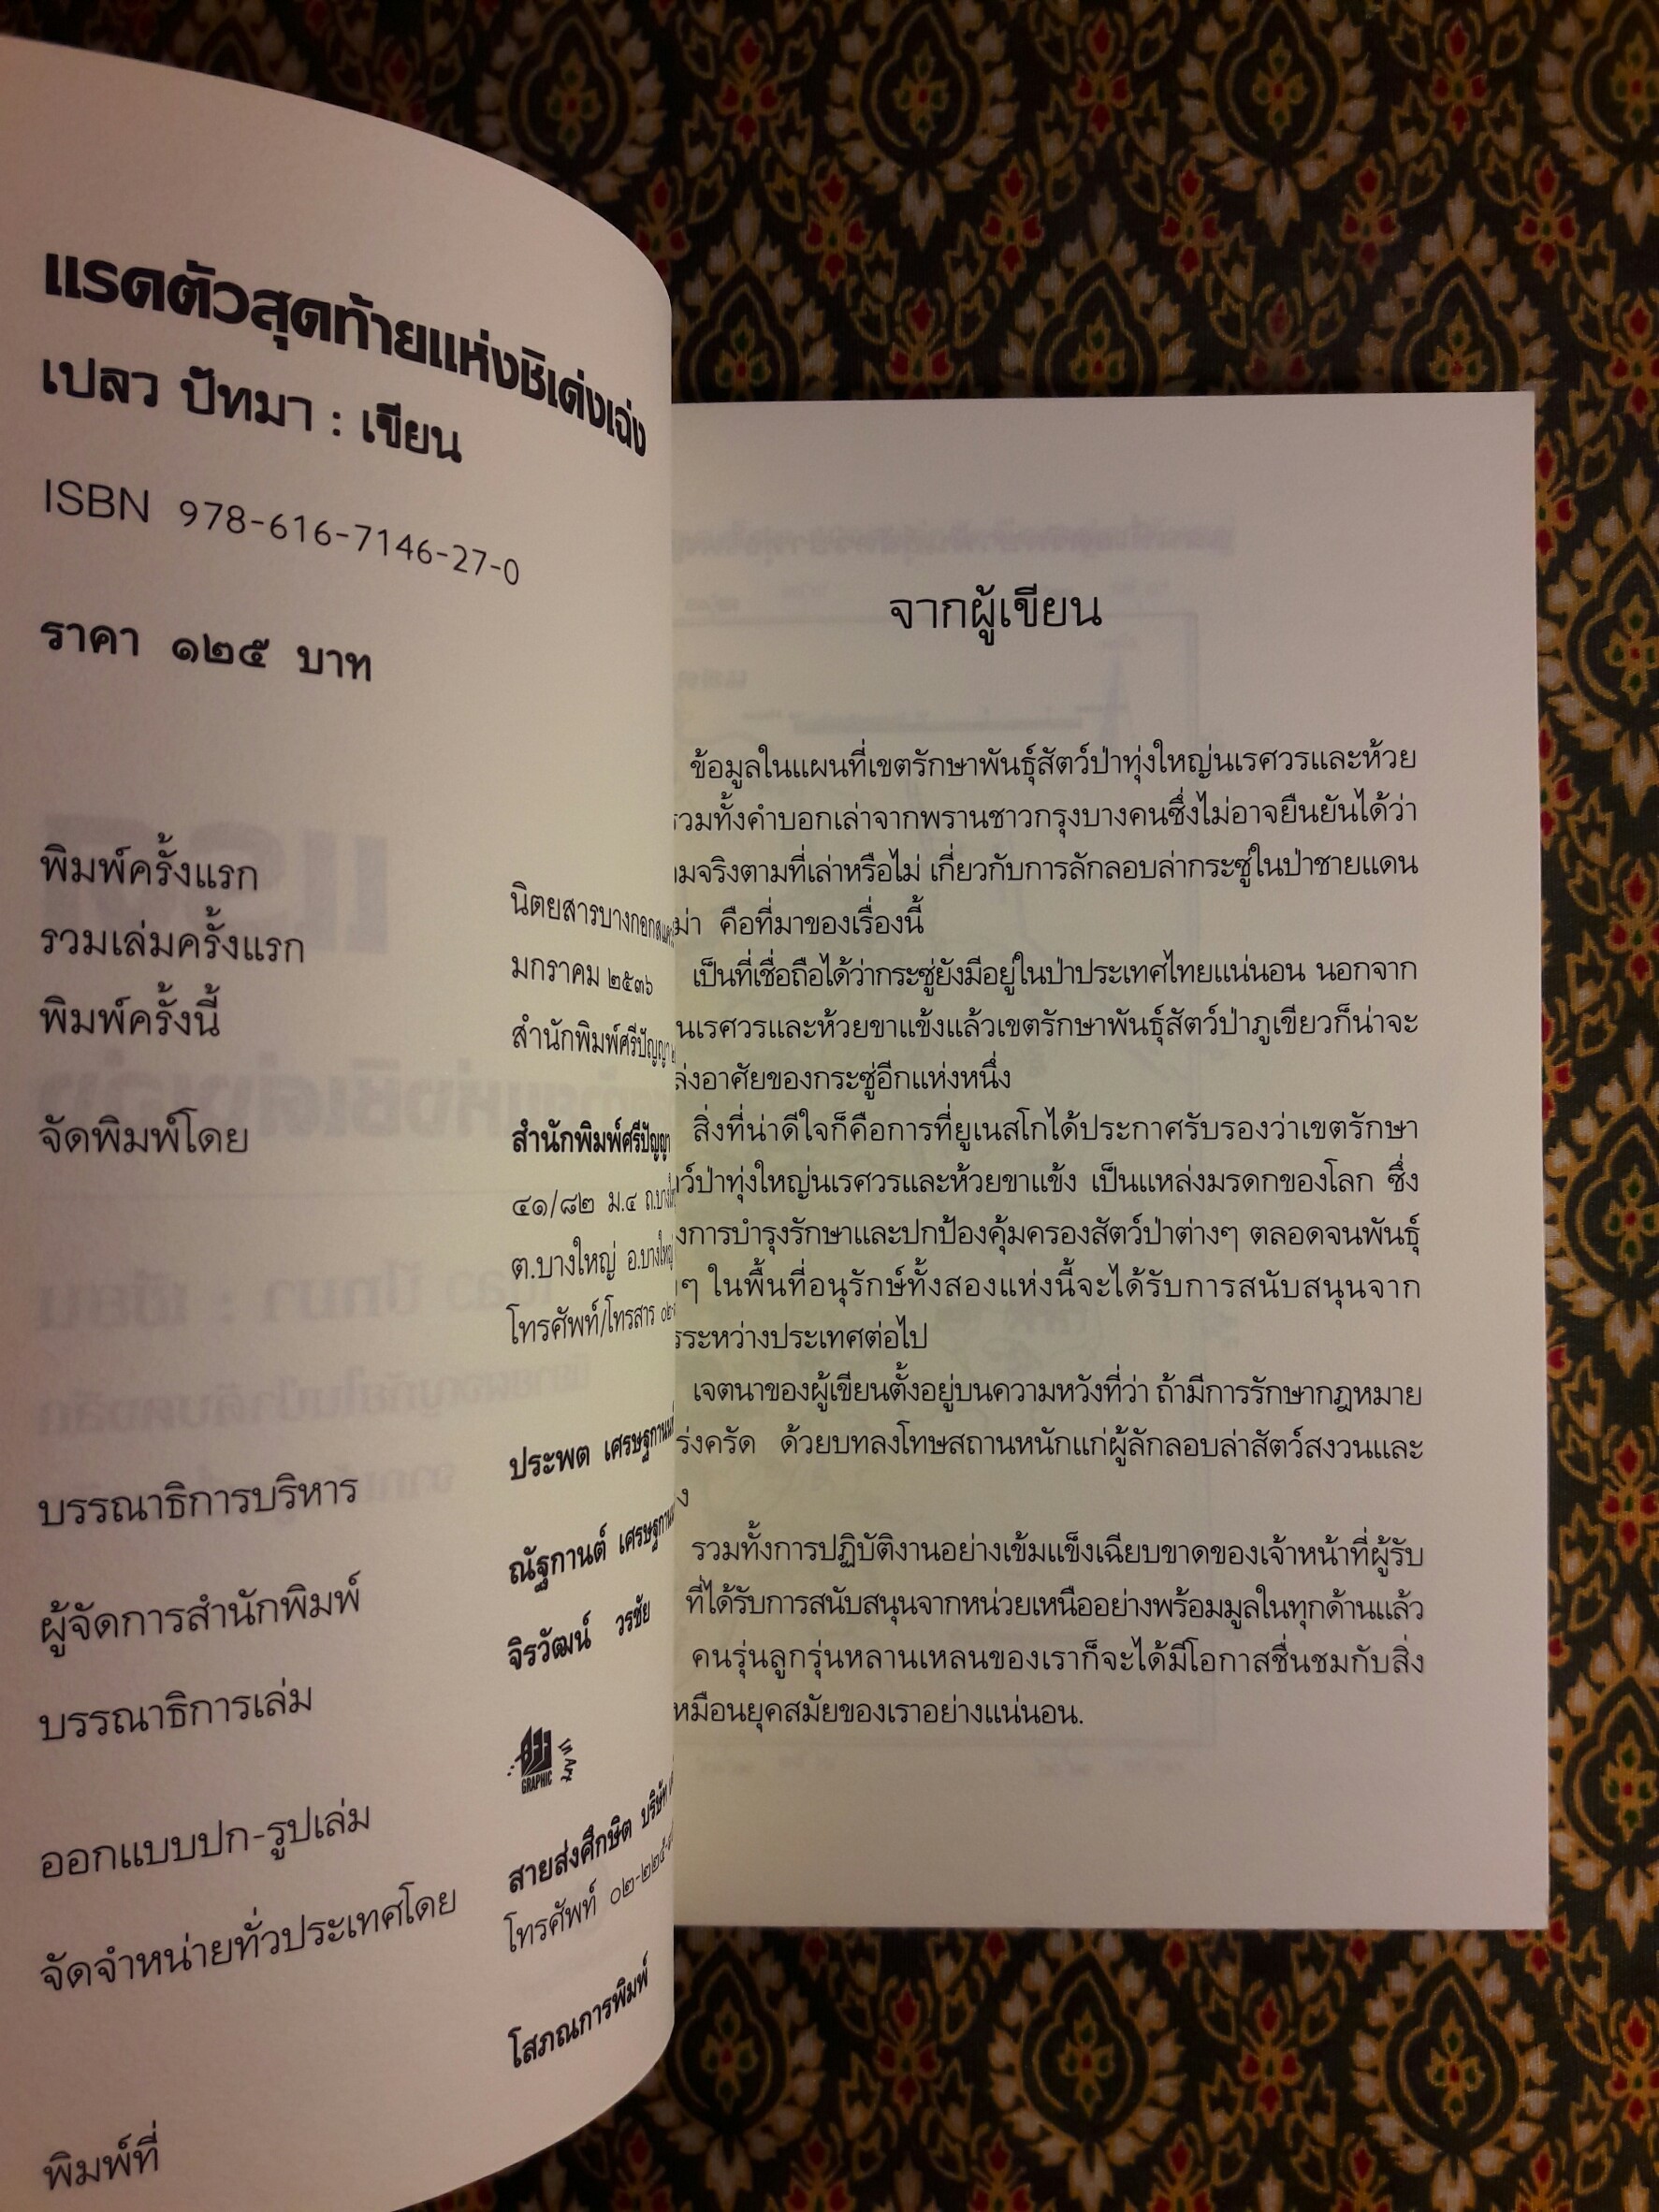 แรดตัวสุดท้ายแห่งชิเด่งเฉ่ง
เปลว ปัทมา : เขียน
ISBN 978-616-7146-27-0
ราคา ๑๒๕ บาท
พิมพ์ครั้งแรก
นิตยสารบางกอก
รวมเล่มครั้งแรก
มกราคม ๒๕๓๖
พิมพ์ครั้งนี้
สำนักพิมพ์ศรีปัญญา
จัดพิมพ์โดย
สำนักพิมพ์ศรีปัญญา
๔๑/๘๒ ม.๔
ต.บางใหญ่ อ.บางใหญ่
โทรศัพท์/โทรสาร
บรรณาธิการบริหาร
ประพต
ผู้จัดการสำนักพิมพ์
ณัฐกานต์
บรรณาธิการเล่ม
จิรวัฒน์ วรชัย
ออกแบบปก-รูปเล่ม
GRAPHIC
Art
จัดจำหน่ายทั่วประเทศโดย
สายส่งศึกษิต บริษัท
โทรศัพท์
พิมพ์ที่
โสภณการพิมพ์
จากผู้เขียน
ข้อมูลในแผนที่เขตรักษาพันธุ์สัตว์ป่าทุ่งใหญ่นเรศวรและห้วย
รวมทั้งคำบอกเล่าจากพรานชาวกรุงบางคนซึ่งไม่อาจยืนยันได้ว่า
มจริงตามที่เล่าหรือไม่ เกี่ยวกับการลักลอบล่ากระซู่ในป่าชายแดน
ม่า คือที่มาของเรื่องนี้
เป็นที่เชื่อถือได้ว่ากระซู่ยังมีอยู่ในป่าประเทศไทยแน่นอน นอกจาก
นเรศวรและห้วยขาแข้งแล้วเขตรักษาพันธุ์สัตว์ป่าภูเขียวก็น่าจะ
ล่งอาศัยของกระซู่อีกแห่งหนึ่ง
สิ่งที่น่าดีใจก็คือการที่ยูเนสโกได้ประกาศรับรองว่าเขตรักษา
ว์ป่าทุ่งใหญ่นเรศวรและห้วยขาแข้ง เป็นแหล่งมรดกของโลก ซึ่ง
งการบำรุงรักษาและปกป้องคุ้มครองสัตว์ป่าต่างๆ ตลอดจนพันธุ์
ๆ ในพื้นที่อนุรักษ์ทั้งสองแห่งนี้จะได้รับการสนับสนุนจาก
รระหว่างประเทศต่อไป
เจตนาของผู้เขียนตั้งอยู่บนความหวังที่ว่า ถ้ามีการรักษากฎหมาย
ร่งครัด ด้วยบทลงโทษสถานหนักแก่ผู้ลักลอบล่าสัตว์สงวนและ
ง
รวมทั้งการปฏิบัติงานอย่างเข้มแข็งเฉียบขาดของเจ้าหน้าที่ผู้รับ
ที่ได้รับการสนับสนุนจากหน่วยเหนืออย่างพร้อมมูลในทุกด้านแล้ว
คนรุ่นลูกรุ่นหลานเหลนของเราก็จะได้มีโอกาสชื่นชมกับสิ่ง
หมือนยุคสมัยของเราอย่างแน่นอน.